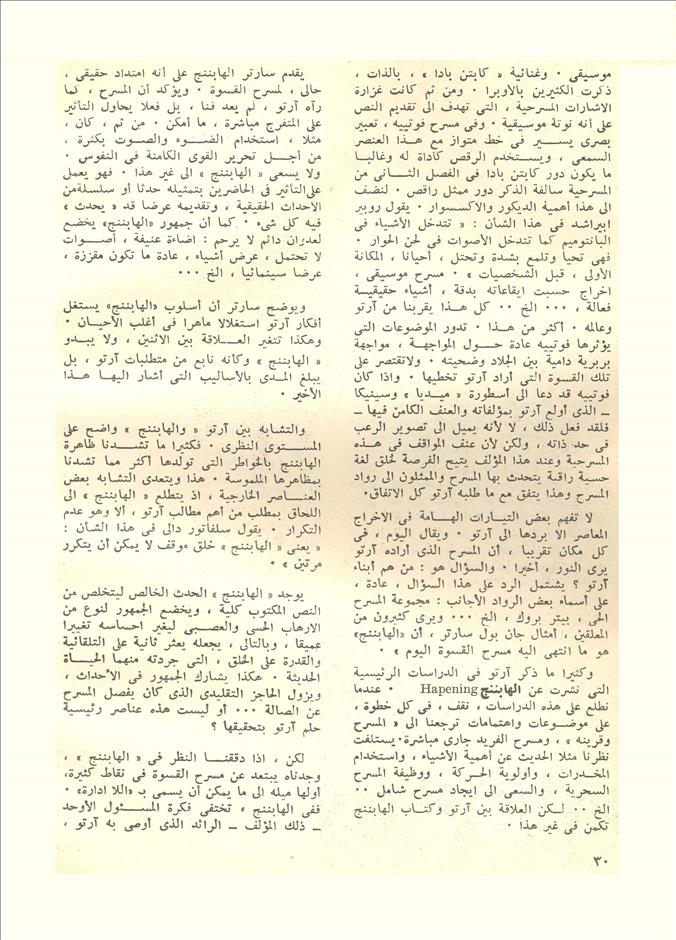 موسيقى ٠ وغنائية « كابتن بادا » ، بالذات ،
ذكرت الكثيرين بالأوبرا ٠ ومن ثم كانت غزارة
الاشارات المسرحية ، التى تهدف الى تقديم النص
على أنه نوتة موسيقية ٠ وفى مسرح فوتييه ، تعبير
بصرى يســـير فى خط متواز مع هــذا العنصر
السمعى ، ويســتخدم الرقص كأداة له وغالبـا
ما يكون دور كابتن بادا فى الفصل الثــانى من
المسرحية سالفة الذكر دور ممثل راقص ٠ لنضف
الى هذا أهمية الديكور والاكسسوار ٠ يقول روبير
ابيراشد فى هذا الشأن : « تتدخل الأشياء فى
البانتوميم كما تتدخل الأصوات فى لحن الحوار ٠
فهى تحيا وتلمع بشدة وتحتل ، أحيانا ، المكانة
الأولى ، قبل الشخصيات » ٠ مسرح موسيقى ،
اخراج حسبت ايقاعاته بدقة ، أشياء حقيقيــة
فعالة ، ٠٠٠ الخ ٠٠ كل هــذا يقربنا من آرتو
وعالمه ٠ أكثر من هــذا ٠ تدور الموضوعات التى
يؤثرها فوتييه عادة حــول المواجهــة ، مواجهة
بربرية دامية بين الجلاد وضحيته ٠ ولاتقتصر على
تلك القسوة التى أراد آرتو تخطيها ٠ واذا كان
فوتييه قد دعا الى أسطورة « ميديا » وسينيكا
ــ الذى أولع آرتو بمؤلفاته والعنف الكامن فيها ــ
فلقد فعل ذلك ، لا لأنه يميل الى تصوير الرعب
فى حد ذاته ، ولكن لأن عنف المواقف فى هــذه
المسرحية وعند هذا المؤلف يتيح الفرصة لخلق لغة
حسية راقية يتحدث بها المسرح والممثلون الى رواد
المسرح وهذا يتفق مع ما طلبه آرتو كل الاتفاق٠
لا تفهم بعض التيــارات الهــامة فى الاخراج
المعاصر الا بردها الى آرتو ٠ ويقال اليوم ، فى
كل مكان تقريبا ، أن المسرح الذى أراده آرتو
يرى النور ، أخيرا ٠ والسؤال هو : من هم أبناء
آرتو ؟ يشتمل الرد على هذا السؤال ، عادة ،
على أسماء بعض الرواد الأجانب : مجموعة المسرح
الحى ، بيتر بروك ، الخ ٠٠٠ ويرى كثيرون من
المعلقين ، أمثال جان بول سارتر ، أن «الهابننج»
هو ما انتهى اليه مسرح القسوة اليوم » ٠
وكثيرا ما ذكر آرتو فى الدراسات الرئيسية
التى نشرت عن الهابننج Hapening ٠ عندما
نطلع على هذه الدراسات ، نقف ، فى كل خطوة ،
على موضــوعات واهتمامات ترجعنا الى « المسرح
وقرينه » ، ومسرح الفريد جارى مباشرة٠ يستلفت
نظرنا مثلا الحديث عن أهمية الأشياء ، واستخدام
المخــدرات ، وأولوية الحــركة ، ووظيفة المسرح
السحرية ، والسعى الى ايجاد مسرح شامل ٠٠
الخ ٠٠ لــكن العلاقة بين آرتو وكتــاب الهابننج
تكمن فى غير هذا ٠
يقدم سارتر الهابننج على أنه امتداد حقيقى ،
حالى ، لمسرح القسوة ٠ ويؤكد أن المسرح ، كما
رآه آرتو ، لم يعد فنا ، بل فعلا يحاول التأثير
على المتفرج مباشرة ، ما أمكن ٠ من ثم ، كان ،
مثلا ، استخدام الضــوء والصوت بكثرة ،
من أجــل تحرير القوى الكامنة فى النفوس ٠
ولا يسعى « الهابننج » الى غير هذا ٠ فهو يعمل
على التأثير فى الحاضرين بتمثيله حدثا أو سلسلة من
الأحداث الحقيقية ، وتقديمه عرضا قد « يحدث »
فيه كل شىء ٠ كما أن جمهور «الهابننج» يخضع
لعدوان دائم لا يرحم : اضاءة عنيفة ، أصــوات
لا تحتمل ، عرض أشياء ، عادة ما تكون مقززة ،
عرضا سينمائيا ، الخ ٠٠٠
ويوضح سارتر أن أسلوب «الهابننج» يستغل
أفكار آرتو استغلالا ماهرا فى أغلب الأحيــان ٠
وهكذا تتغير العــلاقة بين الاثنين ، ولا يبــدو
« الهابننج » وكأنه نابع من متطلبات آرتو ، بل
يبلغ المــدى بالأساليب التى أشار اليهــا هــذا
الأخير ٠
والتشابه بين آرتو « والهابننج » واضح على
المســتوى النظرى ٠ فكثيرا ما تشــدنا ظاهرة
الهابننج بالخواطر التى تولدها أكثر مما تشدنا
بمظاهرها الملموسة ٠ هذا ويتعدى التشابه بعض
العنــاصر الخارجية ، اذ يتطلع « الهابننج » الى
اللحاق بمطلب من أهم مطالب آرتو ، ألا وهو عدم
التكرار ٠ يقول سلفاتور دالى فى هذا الشأن :
« يعنى « الهابننج » خلق موقف لا يمكن أن يتكرر
مرتين » ٠
يوجد « الهابننج » الحدث الخالص ليتخلص من
النص المكتوب كلية ، ويخضع الجمهور لنوع من
الارهاب الحسى والعصــبى ليغير احساسه تغييرا
عميقا ، وبالتالى ، يجعله يعثر ثانية على التلقائية
والقدرة على الخلق ، التى جردته منهما الحيــاة
الحديثة ٠ هكذا يشارك الجمهور فى الأحداث ،
ويزول الحاجز التقليدى الذى كان يفصل المسرح
عن الصالة ٠٠٠ أو ليست هذه عناصر رئيسية
حلم آرتو بتحقيقها ؟
لكن ، اذا دققنــا النظر فى « الهابننج » ،
وجدناه يبتعد عن مسرح القسوة فى نقاط كثيرة،
أولها ميله الى ما يمكن أن يسمى بـ «اللا ادارة» ٠
ففى الهابننج ، تختفى فكرة المســئول الأوحد
ــ ذلك المؤلف ــ الرائد الذى أوصى به آرتو ،
٣٠